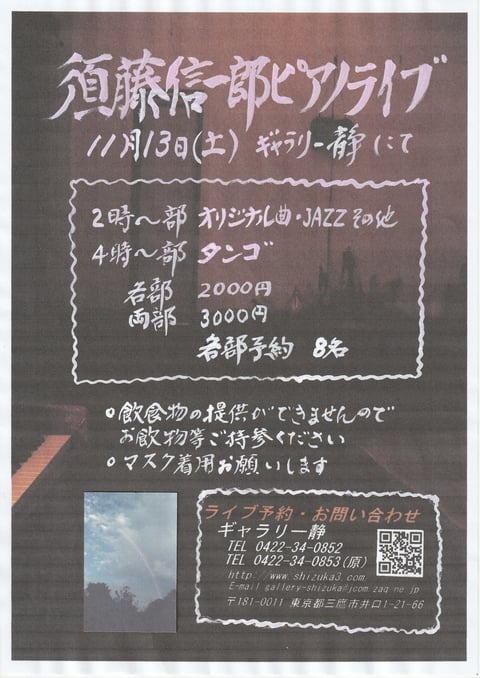 須藤信一郎ピアノライブ
11月13日(土) ギャラリー静にて
2時〜部 オリジナル曲・JAZZその他
4時〜部 タンゴ
各部 2000円
両部 3000円
各部予約 8名
○飲食物の提供ができませんので
お飲物等ご持参ください
○マスク着用お願いします
ライブ予約・お問い合わせ
ギャラリー静
TEL 0422-34-0852
TEL 0422-34-0853(原)
http://www.shizuka3.com
E-mail gallery-shizuka@jcom.zaq.ne.jp
〒181-0011 東京都三鷹市井口1-21-66